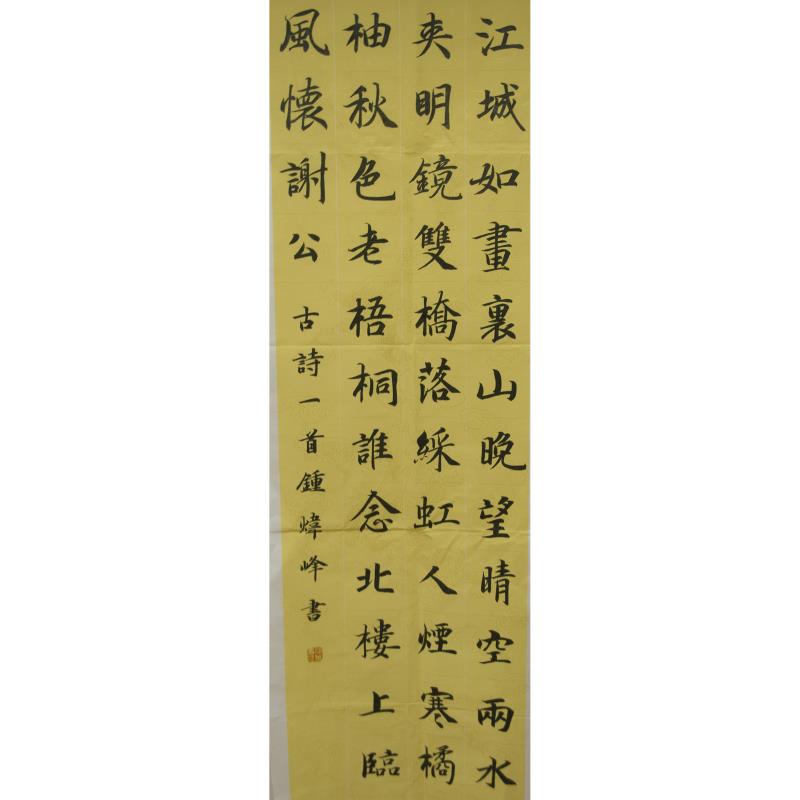 江城如畫裏山晚望晴空兩水
夾明鏡雙橋落綵虹人煙寒橘
柚秋色老梧桐誰念北樓上臨
風懷謝公
古詩一首鍾煒峰书